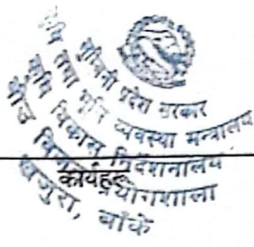 लुम्बिनी प्रदेश सरकार
कृषि तथा भूमि व्यवस्था मन्त्रालय
कृषि विकास निर्देशनालय
बीउ विजन प्रयोगशाला
खजुरा, बाँके
कार्यहरु